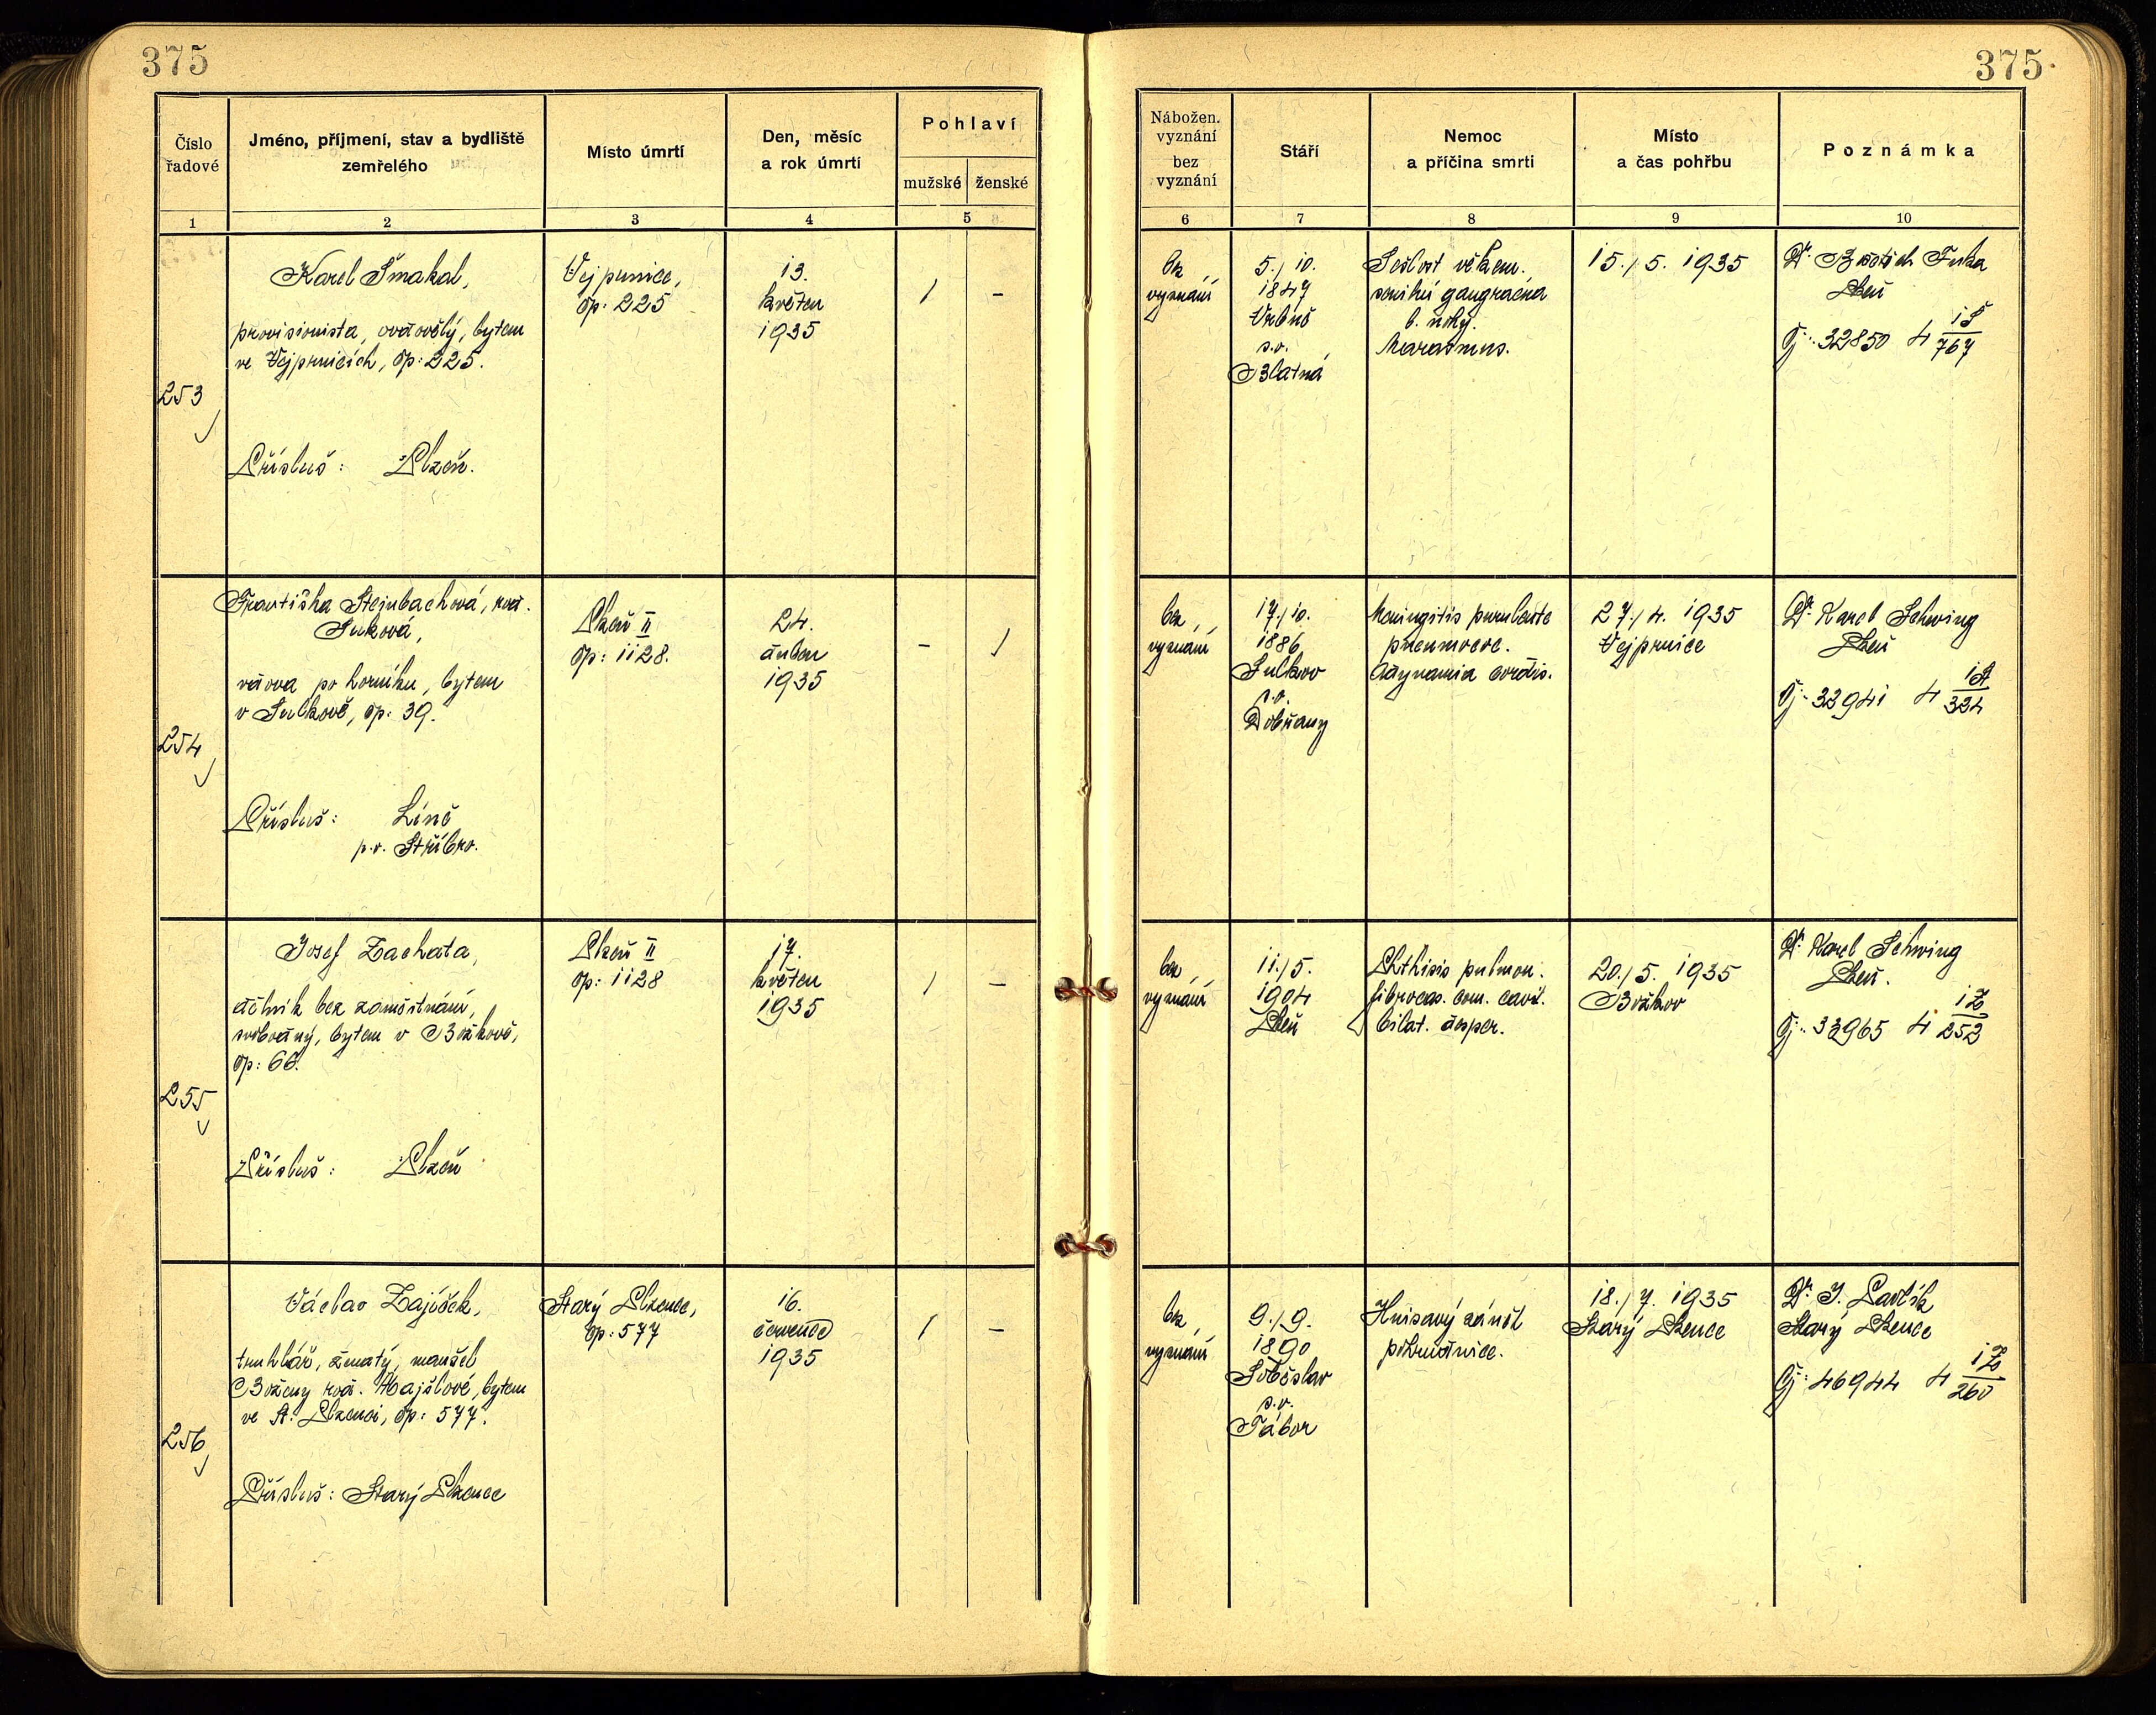 375
375
Číslo řadové
Jméno, příjmení, stav a bydliště
zemřelého
Místo úmrtí
Den, měsíc
a rok úmrtí
Pohlaví
mužské
ženské
Nábožen.
vyznání
bez
vyznání
Stáří
Nemoc
a příčina smrti
Místo
a čas pohřbu
Poznámka
1
2
3
4
5
6
7
8
9
10
253
Karel Šmakal,
provisionista, ovdovělý, bytem
ve Vejprnicích, čp: 225.
Přísluš: Plzeň.
Vejprnice,
čp: 225
13.
květen
1935
/
-
bez
vyznání
5./10.
1847
Vrbně
s.o.
Blatná
Sešlost věkem.
senilní gangraena
l. nohy.
Marasmus.
15./5. 1935
Dr. Fuka
Plzeň
Čj: 32850 4 1Š/767
254
Františka Štejnbachová, roz.
Suková,
vdova po horníku, bytem
v Sulkově, čp: 39.
Přísluš: Líně
p.o. Stříbro.
Plzeň II
čp: 1128.
24.
duben
1935
-
/
bez
vyznání
17./10.
1886
Sulkov
s.o.
Dobřany
Meningitis purulenta
pneumococ.
Adynamia cordis.
27./4. 1935
Vejprnice
Dr. Karel Schwing
Plzeň
Čj: 33941 4 1Š/334
255
Josef Zachata,
dělník bez zaměstnání,
svobodný, bytem v Božkově,
čp: 66.
Přísluš: Plzeň
Plzeň II
čp: 1128
17.
květen
1935
/
-
bez
vyznání
11./5.
1904
Plzeň
Phthisis pulmon.
fibrocas. com. cavi.
bilat. desper.
20./5. 1935
Božkov
Dr. Karel Schwing
Plzeň.
Čj: 33965 4 1Z/252
256
Václav Zajíček,
truhlář, ženatý, manžel
Boženy roz. Hajšlové, bytem
ve St: Plzenci, čp: 577.
Přísluš: Starý Plzenec
Starý Plzenec,
čp: 577
16.
července
1935
/
-
bez
vyznání
9./9.
1890
Soběslav
s.o.
Tábor
Hnisavý zánět
pobřišnice.
18./7. 1935
Starý Plzenec
Dr. J. Pavlík
Starý Plzenec
Čj: 46944 4 1Z/260